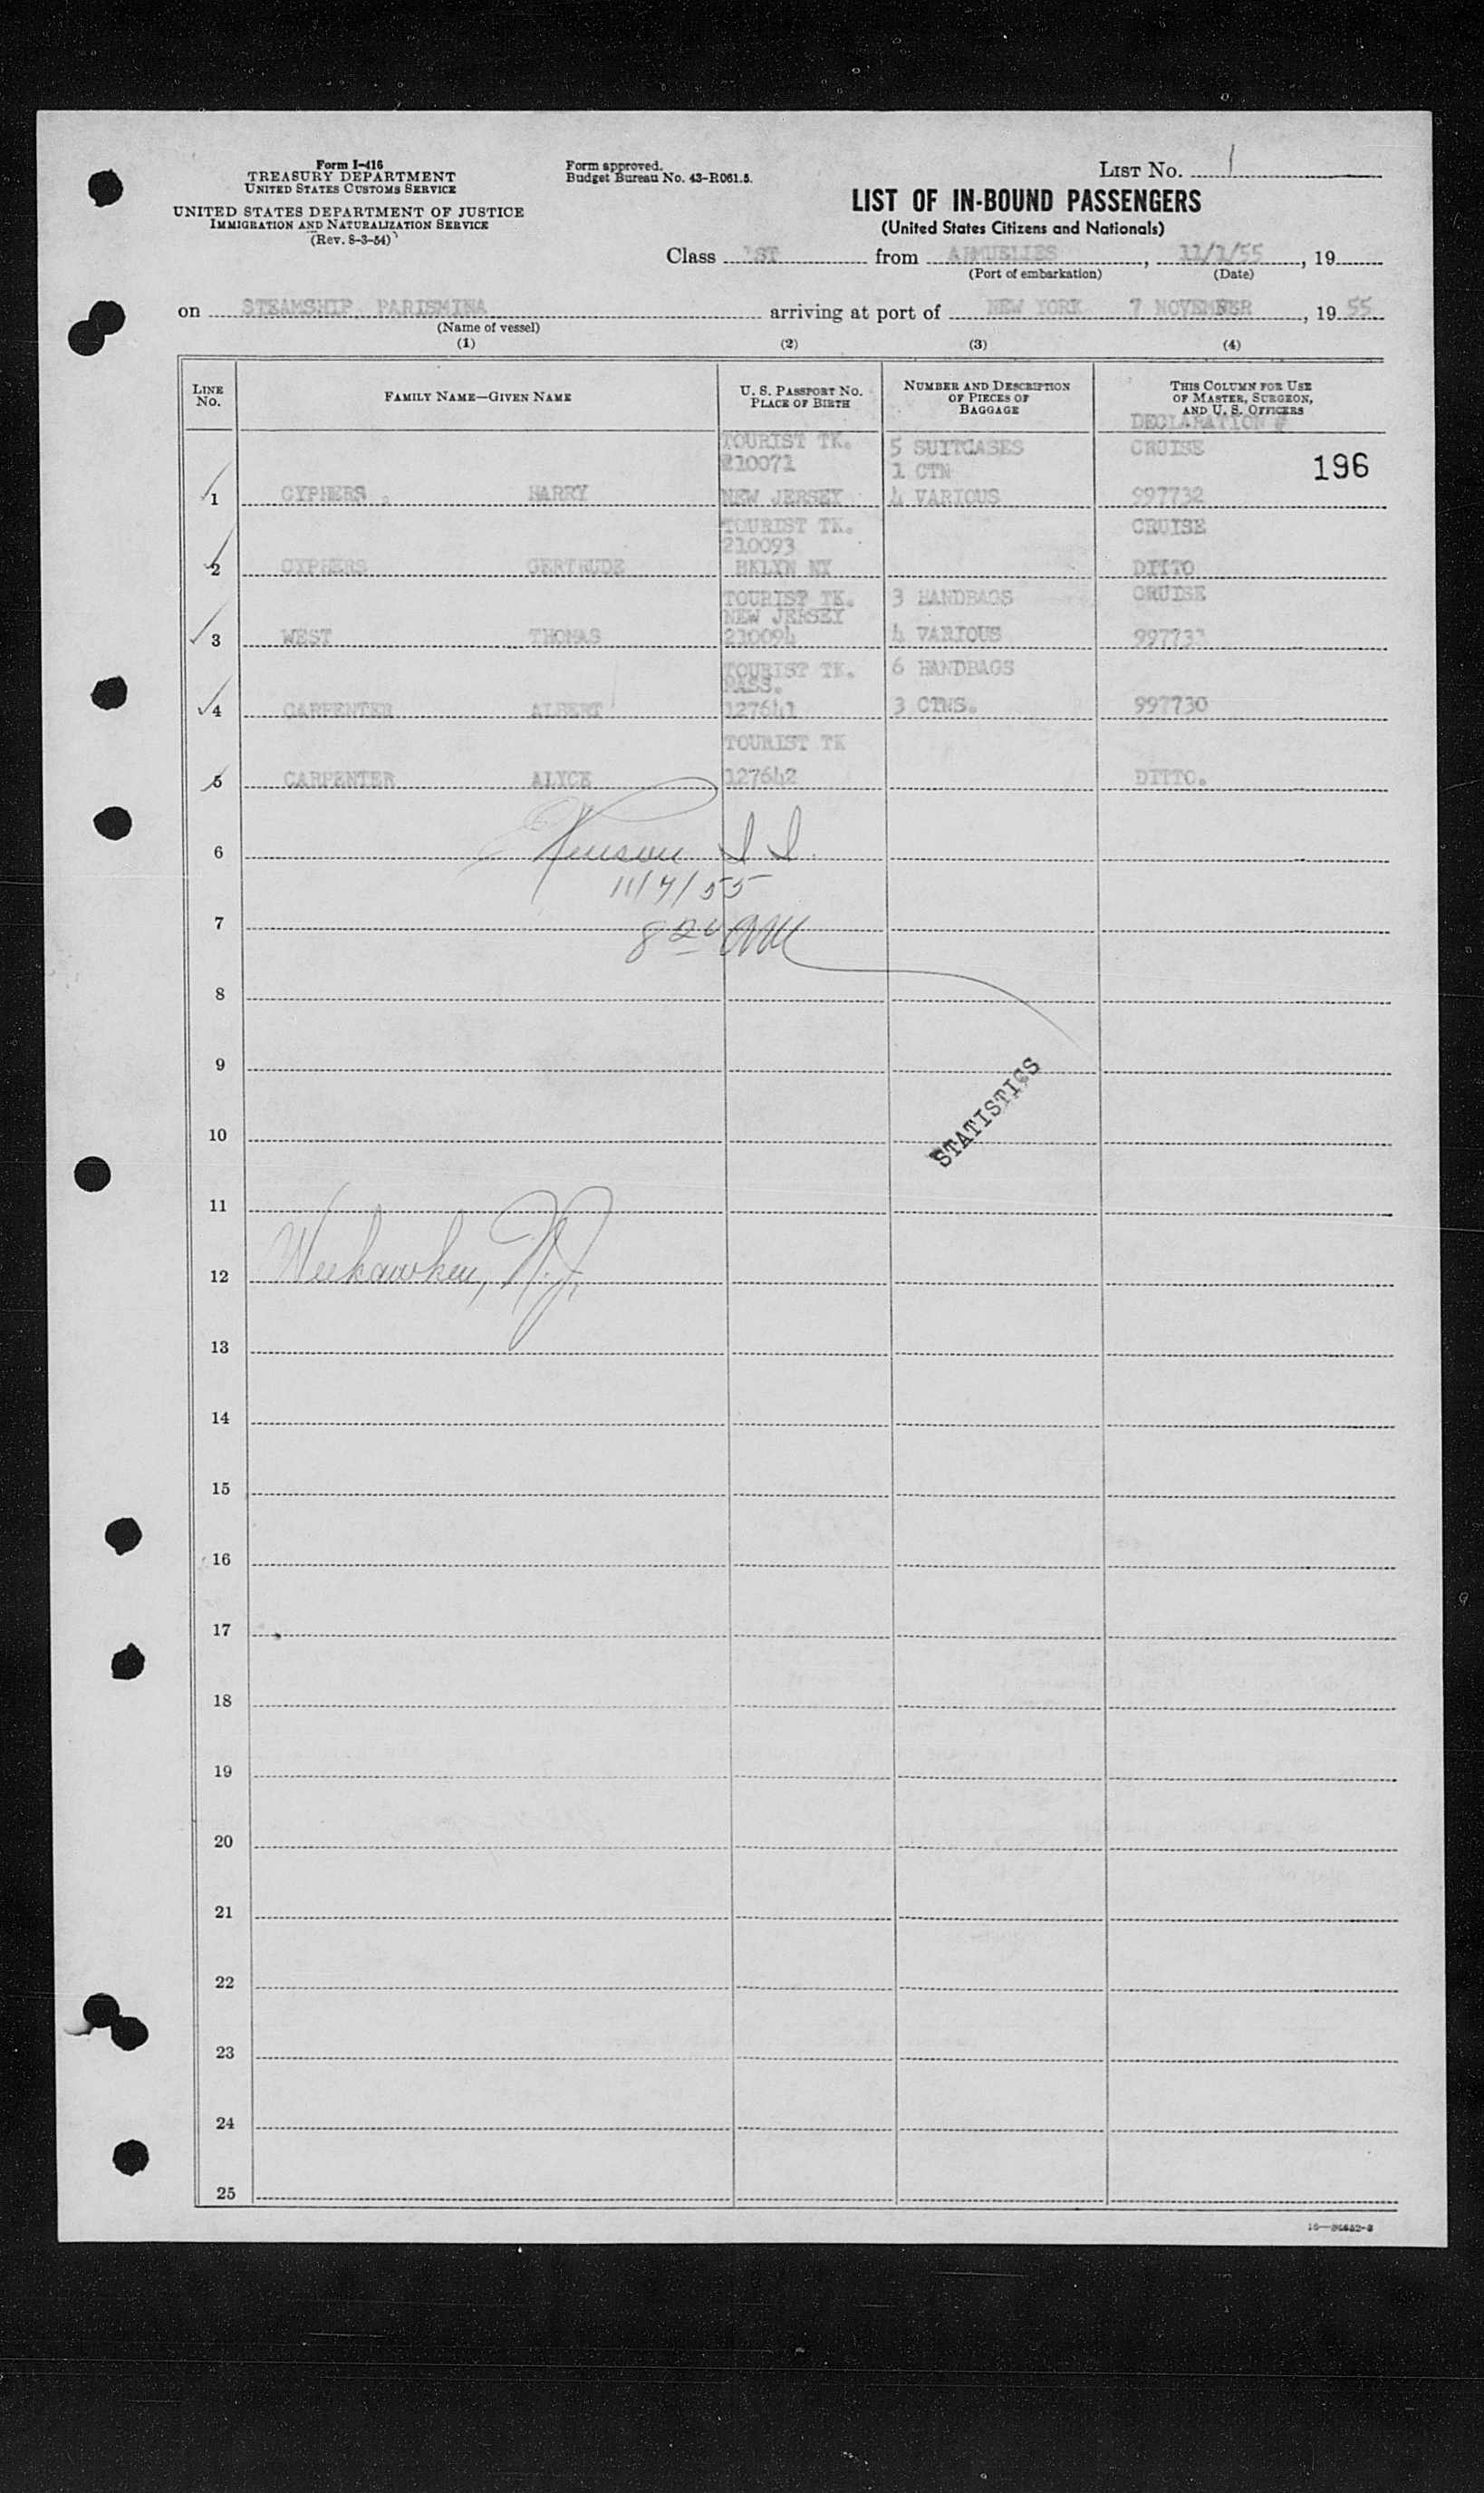 Form I-416
TREASURY DEPARTMENT
UNITED STATES CUSTOMS SERVICE
UNITED STATES DEPARTMENT OF JUSTICE
IMMIGRATION AND NATURALIZATION SERVICE
(Rev. 8-3-54)
Form approved.
Budget Bureau No. 43-R061.5.
LIST NO. 1
LIST OF IN-BOUND PASSENGERS
(United States Citizens and Nationals)
Class 1ST from ARMUELIES, 11/1/55, 19
(Port of embarkation) (Date)
on STEAMSHIP PARISMINA arriving at port of NEW YORK 7 NOVEMBER, 19 55
(Name of vessel)
(1) (2) (3) (4)
LINE NO. FAMILY NAME—GIVEN NAME U. S. PASSPORT NO. PLACE OF BIRTH NUMBER AND DESCRIPTION OF PIECES OF BAGGAGE THIS COLUMN FOR USE OF MASTER, SURGEON, AND U. S. OFFICERS
DECLARATION #
TOURIST TK. 5 SUITCASES CRUISE
210071 1 CTN 196
1 CYPHERS, HARRY NEW JERSEY 4 VARIOUS 997732
TOURIST TK. CRUISE
210093
2 CYPHERS GERTRUDE BKLYN NY DITTO
TOURIST TK. 3 HANDBAGS CRUISE
NEW JERSEY
3 WEST THOMAS 210094 4 VARIOUS 997733
TOURIST TK. 6 HANDBAGS
PASS.
4 CARPENTER ALBERT 127641 3 CTNS. 997730
TOURIST TK
5 CARPENTER ALYCE 127642 DITTO.
6 I I.
11/7/55
7 8 20 AM
8
9
STATISTICS
10
11
12 Weehawken, N.J.
13
14
15
16
17
18
19
20
21
22
23
24
25